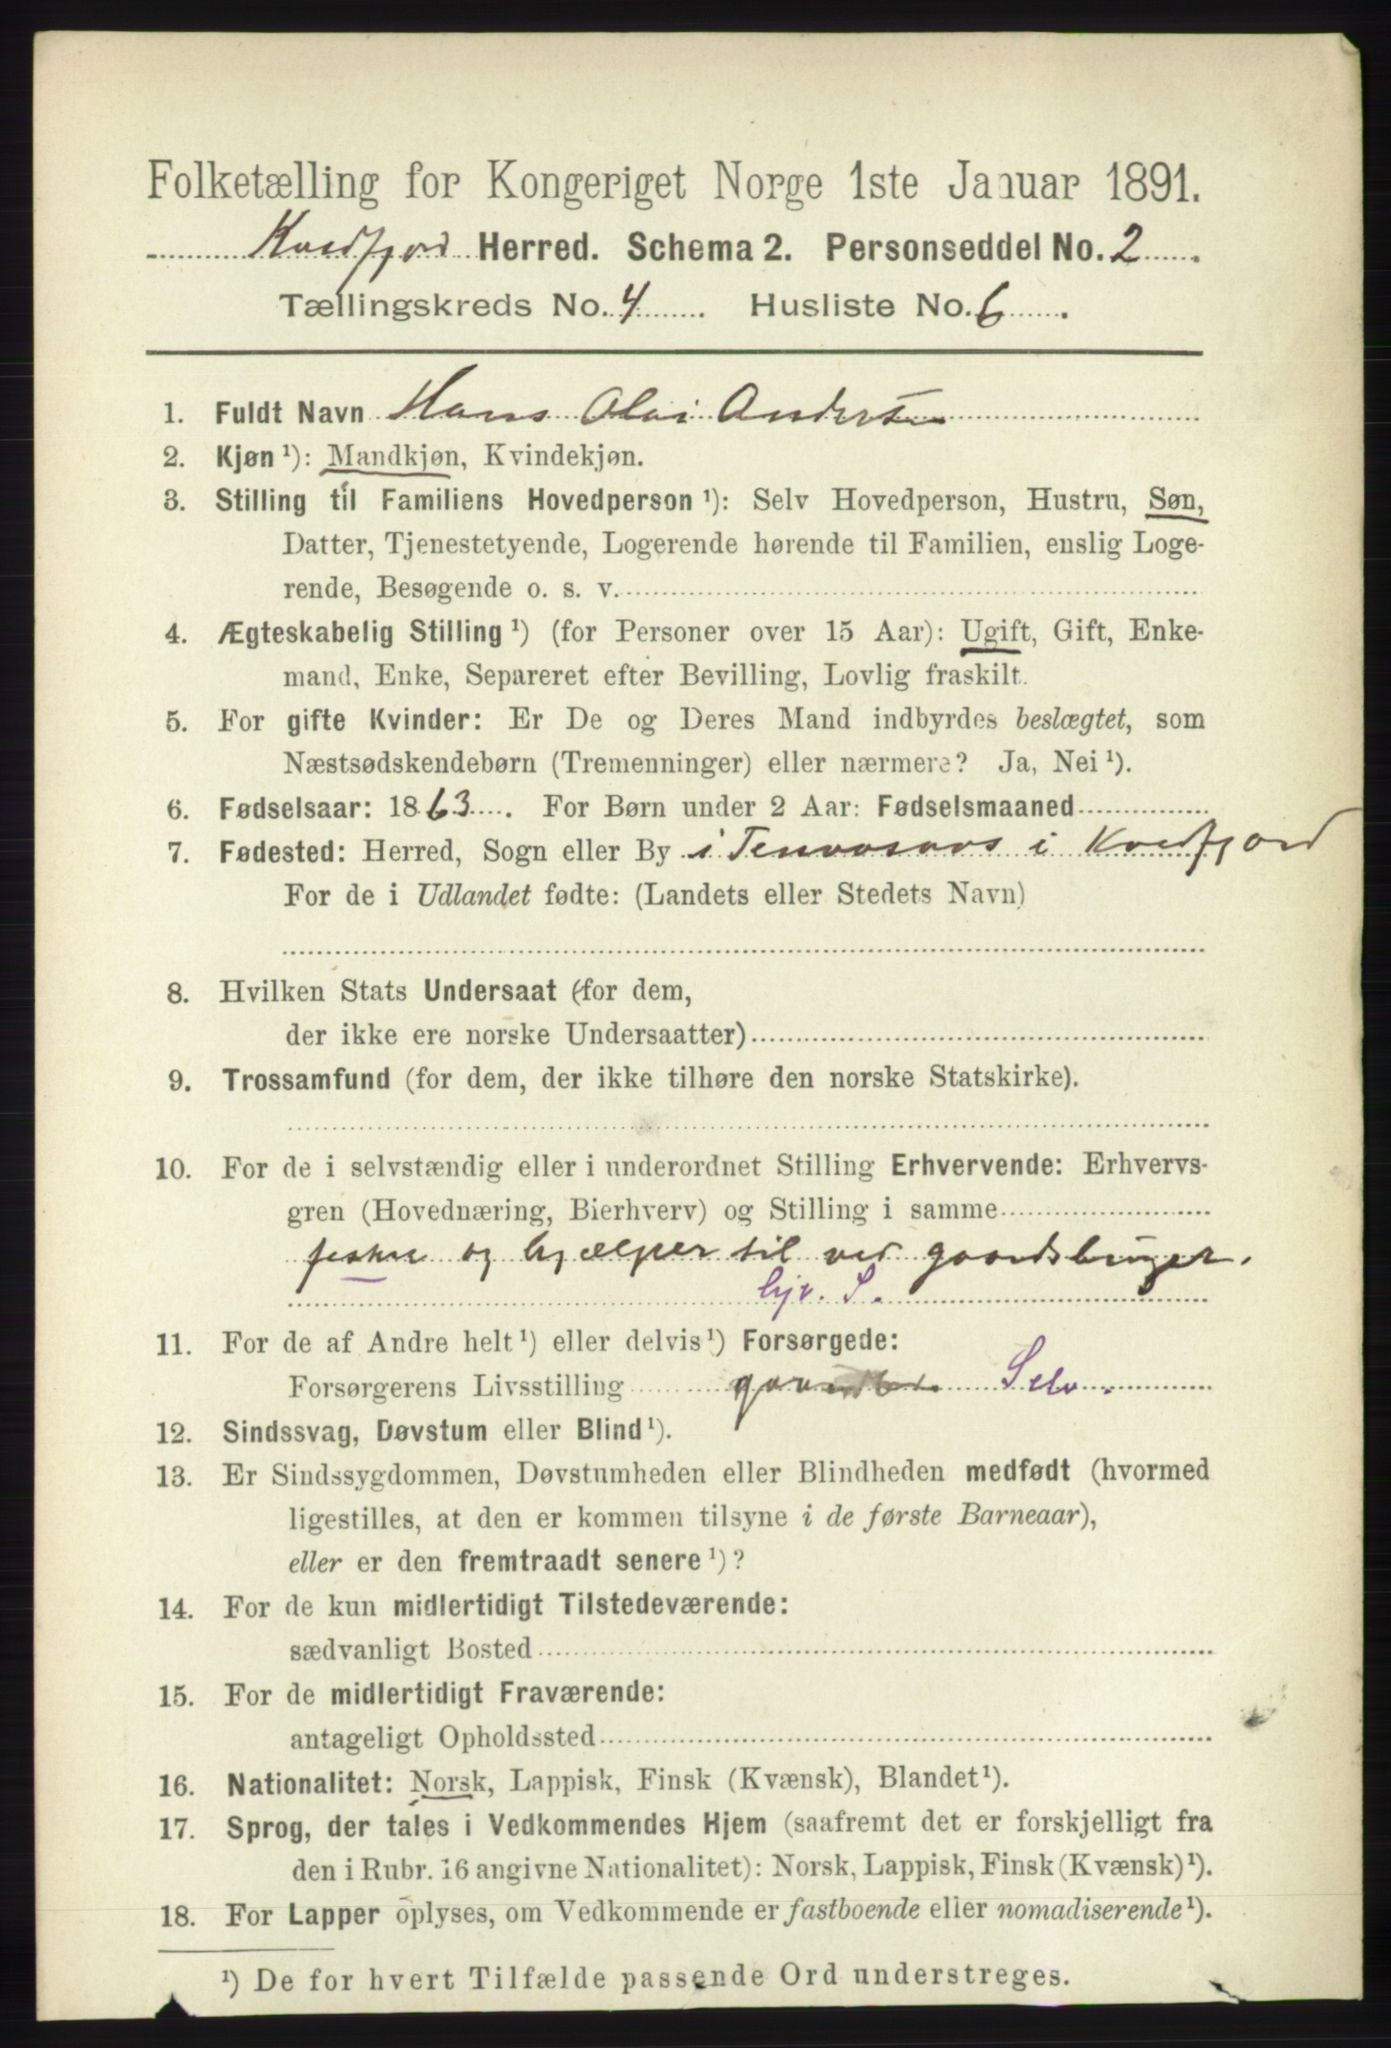 Folketælling for Kongeriget Norge 1ste Januar 1891.
Kvedfjord Herred. Schema 2. Personseddel No. 2
Tællingskreds No. 4 Husliste No. 6
1. Fuldt Navn Hans Olai Andersen
2. Kjøn ¹): Mandkjøn, Kvindekjøn.
3. Stilling til Familiens Hovedperson ¹): Selv Hovedperson, Hustru, Søn,
Datter, Tjenestetyende, Logerende hørende til Familien, enslig Loge-
rende, Besøgende o. s. v.
4. Ægteskabelig Stilling ¹) (for Personer over 15 Aar): Ugift, Gift, Enke-
mand, Enke, Separeret efter Bevilling, Lovlig fraskilt.
5. For gifte Kvinder: Er De og Deres Mand indbyrdes beslægtet, som
Næstsødskendebørn (Tremenninger) eller nærmere? Ja, Nei ¹).
6. Fødselsaar: 1863. For Børn under 2 Aar: Fødselsmaaned
7. Fødested: Herred, Sogn eller By i i Kvedfjord
For de i Udlandet fødte: (Landets eller Stedets Navn)
8. Hvilken Stats Undersaat (for dem,
der ikke ere norske Undersaatter)
9. Trossamfund (for dem, der ikke tilhøre den norske Statskirke).
10. For de i selvstændig eller i underordnet Stilling Erhvervende: Erhvervs-
gren (Hovednæring, Bierhverv) og Stilling i samme
fisker og hjælper til ved gaardsbruget.
hjv. S.
11. For de af Andre helt ¹) eller delvis ¹) Forsørgede:
Forsørgerens Livsstilling Selv.
12. Sindssvag, Døvstum eller Blind ¹).
13. Er Sindssygdommen, Døvstumheden eller Blindheden medfødt (hvormed
ligestilles, at den er kommen tilsyne i de første Barneaar),
eller er den fremtraadt senere ¹)?
14. For de kun midlertidigt Tilstedeværende:
sædvanligt Bosted
15. For de midlertidigt Fraværende:
antageligt Opholdssted
16. Nationalitet: Norsk, Lappisk, Finsk (Kvænsk), Blandet ¹).
17. Sprog, der tales i Vedkommendes Hjem (saafremt det er forskjelligt fra
den i Rubr. 16 angivne Nationalitet): Norsk, Lappisk, Finsk (Kvænsk) ¹).
18. For Lapper oplyses, om Vedkommende er fastboende eller nomadiserende ¹).
¹) De for hvert Tilfælde passende Ord understreges.